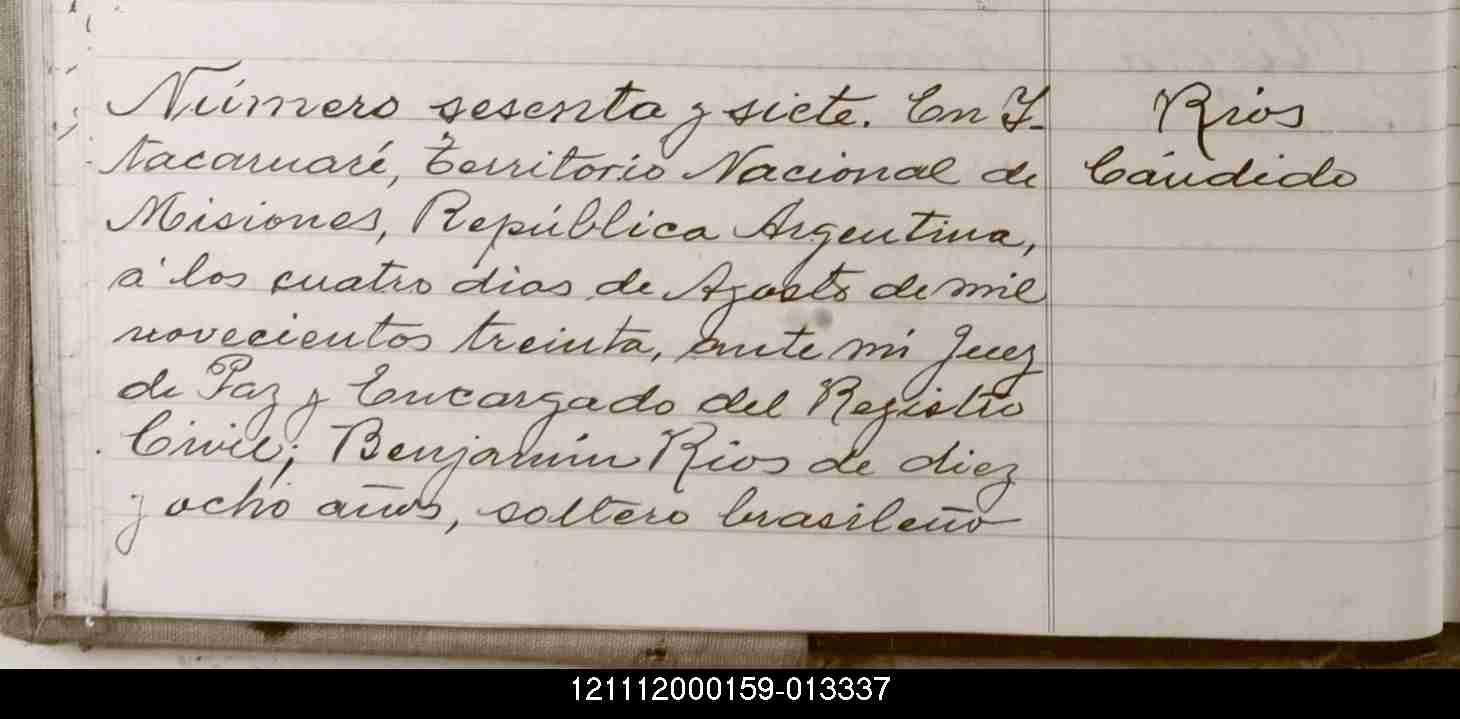 Número sesenta y siete. En I-
tacaruaré, Territorio Nacional de
Misiones, República Argentina,
á los cuatro dias de Agosto de mil
novecientos treinta, ante mi Juez
de Paz y Encargado del Registro
Civil; Benjamín Rios de diez
y ocho años, soltero brasileño
Rios
Cándido
121112000159-013337